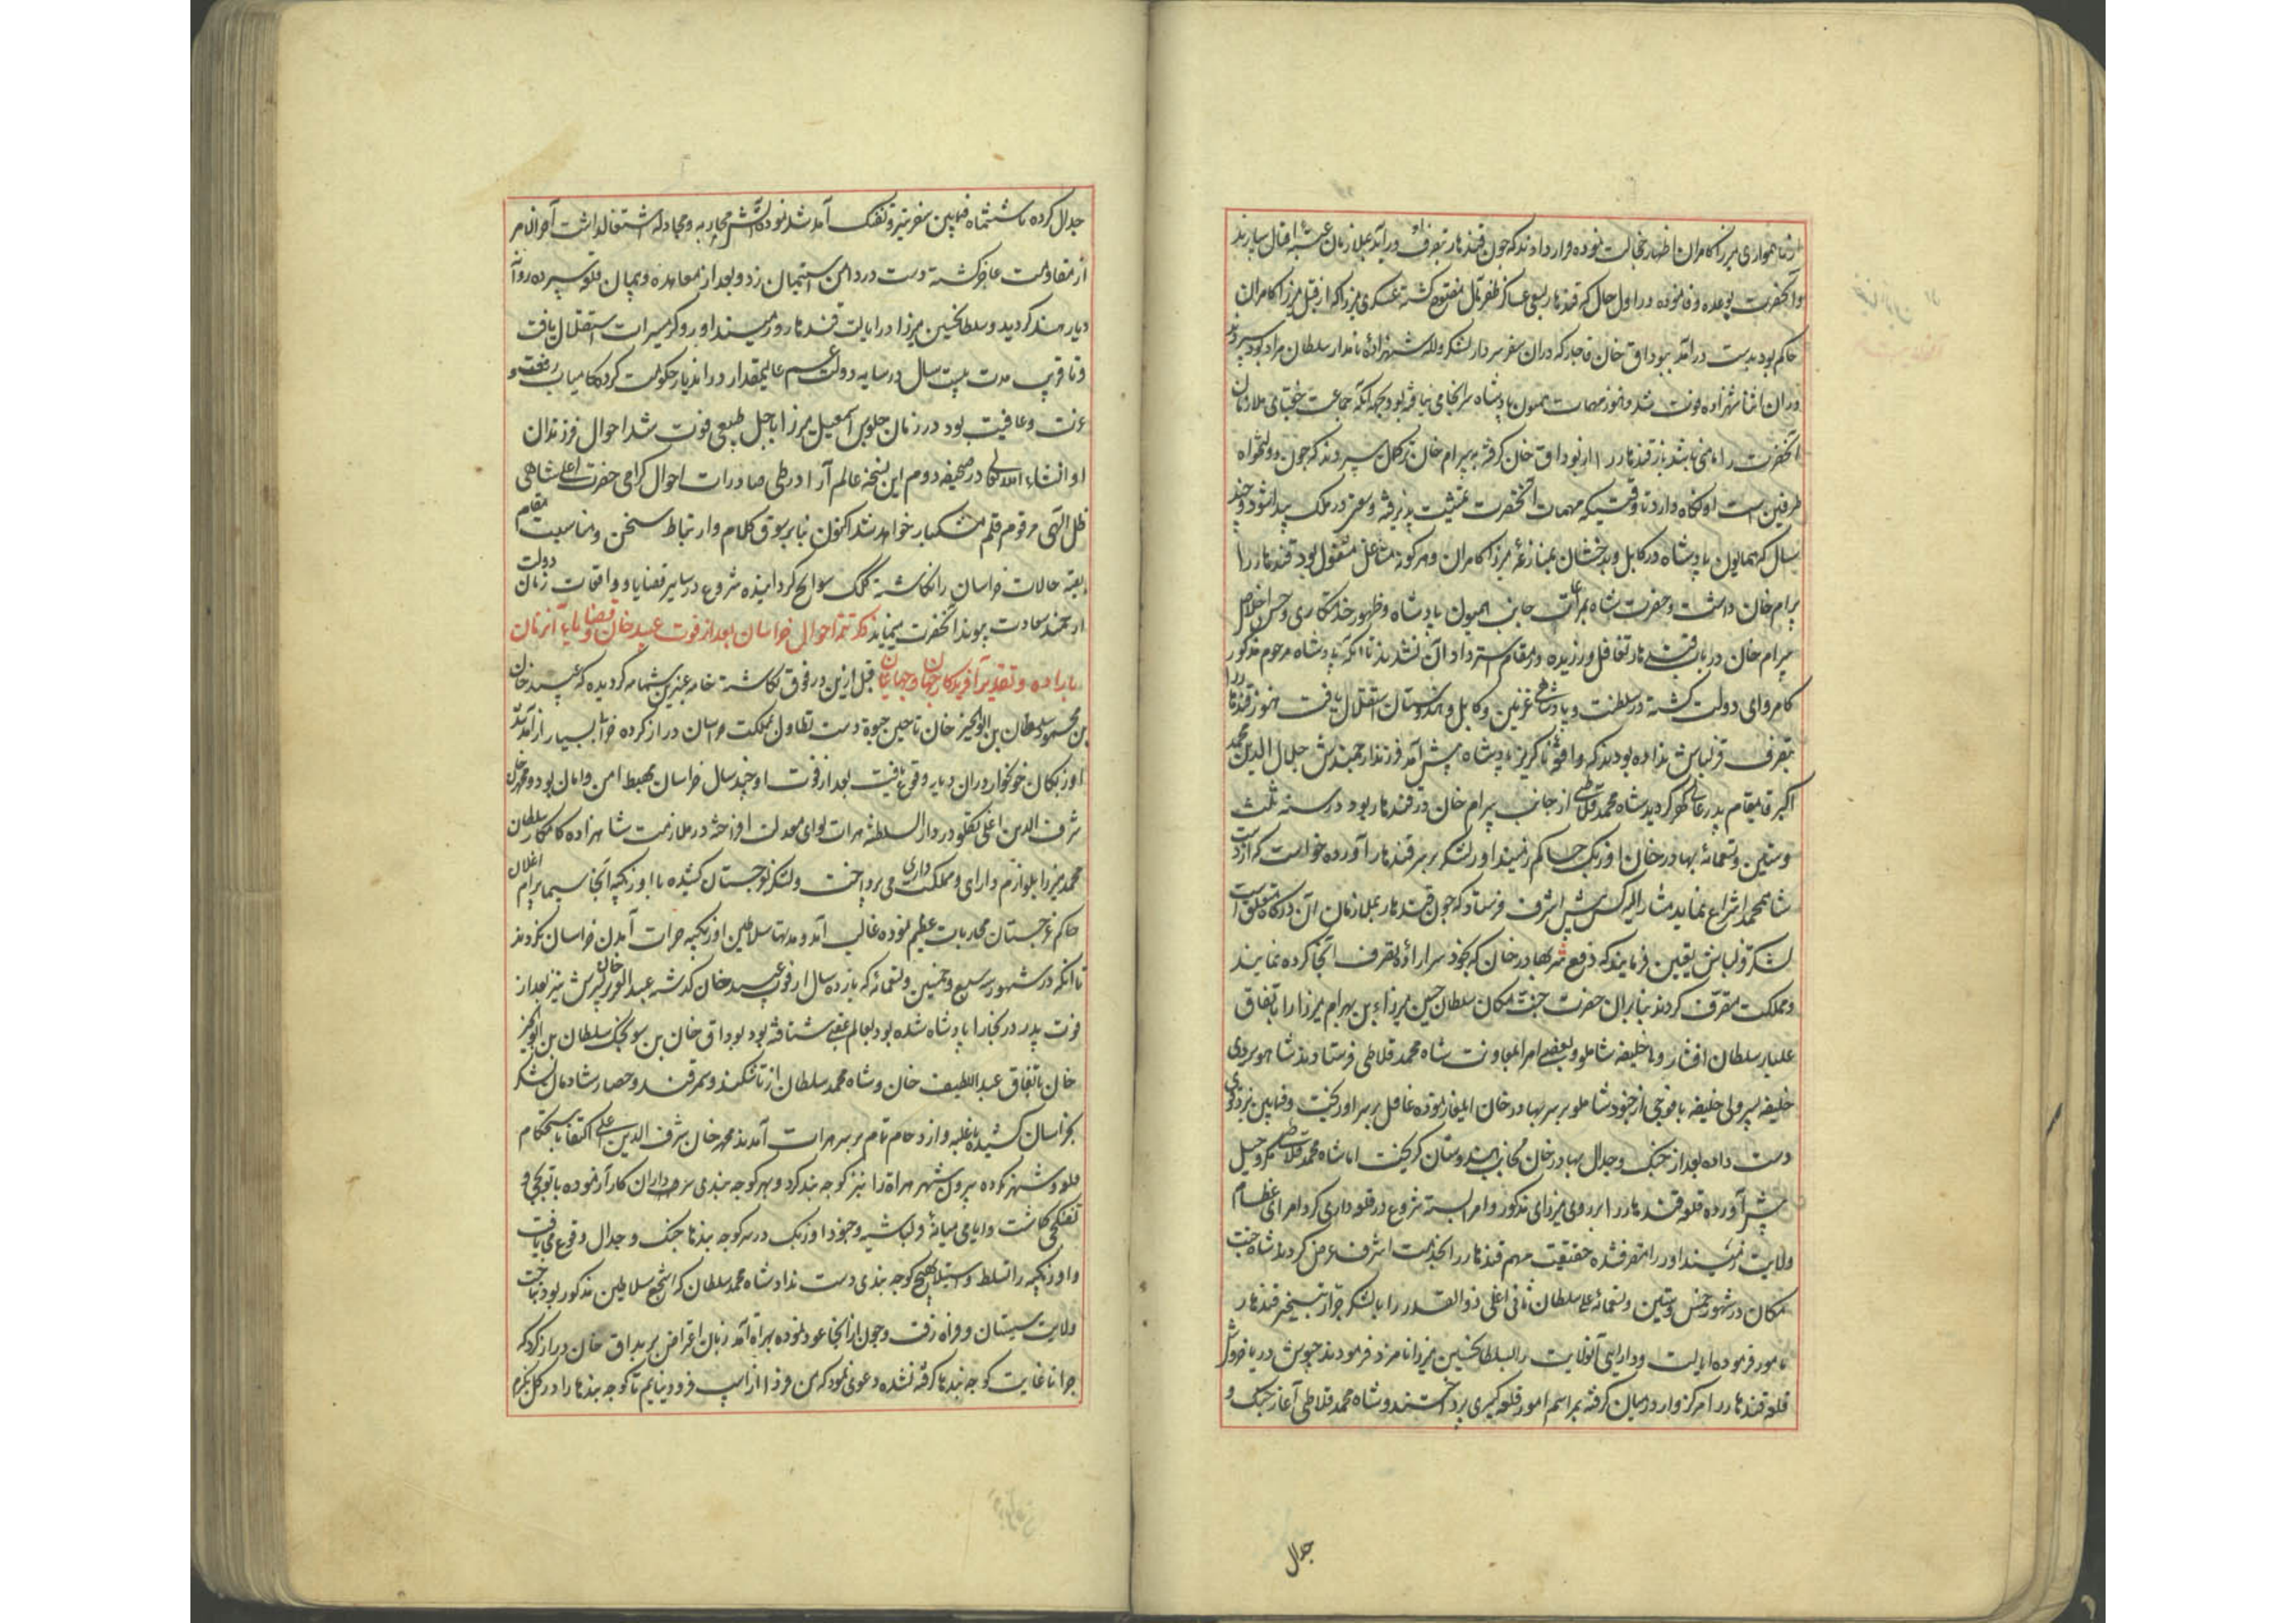 از ناهمواری میرزا کامران اظهار خجالت نموده قرار دادند که چون قندهار بتصرف او درآید بملازمان عتبه اقبال سپارند
و آنحضرت بوعده وفا نموده در اول حال که قندهار بسعی عساکر ظفر مآل مفتوح گشته عسکری میرزا که از قبل میرزا کامران
حاکم بود بدست درآمد ببوداق خان قاجار که در آن سفر سردار لشکر و لله شهزاده نامدار سلطان مراد بود سپردند
در آن اثنا شهزاده فوت شد و هنوز مهمات همیون پادشاه سرانجامی نیافته بود بجهه آنکه جماعت جغتای ملازمان
آنحضرت را مامنی باشد باز قندهار را از بوداق خان گرفته به بیرام خان ترکمان سپردند که چون دولتخواه
طرفین است او نگاه دارد تا وقتیکه مهمات آنحضرت تمشیت پذیرفته وسعتی در ملک پیدا شود و چند
سال که همایون پادشاه در کابل و بدخشان بمنازعه میرزا کامران و هر گونه مشاغل مشغول بود قندهار را
بیرام خان داشت و حضرت شاه بمراعات جانب همیون پادشاه و ظهور خدمتکاری و حسن اخلاص
بیرام خان در باب قندهار تغافل ورزیده در مقام استرداد آن نشدند تا آنکه پادشاه مرحوم مذکور
کامروای دولت گشته در سلطنت و پادشاهی غزنین و کابل و هندوستان استقلال یافت هنوز قندهار را
بتصرف قزلباش نداده بودند که واقعه ناگریز پادشاه پیش آمد فرزند ارجمندش جلال الدین محمد
اکبر قایمقام پدر عالی گهر گردید شاه محمد قلاتی از جانب بیرام خان در قندهار بود در سنه ثلث
و ستین و تسعمائه بهادر خان اوزبک حاکم زمینداور لشکر بر سر قندهار آورده خواست که از دست
شاه محمد انتزاع نماید مشار الیه کس پیش اشرف فرستاد که چون قندهار بملازمان آن درگاه متعلق است
لشکر قزلباش تعیین فرمایند که دفع شر بهادر خان که بخود سر اراده تصرف آنجا کرده نمایند
و مملکت متصرف گردند بنابران حضرت جنت مکان سلطان حسین میرزا بن بهرام میرزا را باتفاق
علیار سلطان افشار و خلیفه شاملو و بعضی امرا بمعاونت شاه محمد قلاتی فرستادند شاهویردی
خلیفه پسر ولی خلیفه با فوجی از جنود شاملو بر سر بهادر خان ایلغار نموده غافل بر سر او ریخت و فیمابین نبرد قوی
دست داده بعد از جنگ و جدال بهادر خان بجانب هندوستان گریخت اما شاه محمد قلاتی مکر و حیل
پیش آورده قلعه قندهار را بر روی میرزای مذکور و امرا بسته شروع در قلعه داری کرد امرای عظام
ولایت زمینداور را متصرف شده حقیقت مهم قندهار را بخدمت اشرف عرض کردند شاه جنت
مکان در شهور خمس و ستین و تسعمائه علی سلطان تاتی اغلی ذوالقدر را با لشکر جرار بتسخیر قندهار
مامور فرموده ایالت و دارایی آنولایت را بسلطانحسین میرزا نامزد فرمودند جیوش دریا خروش
قلعه قندهار را مرکزوار در میان گرفته بمراسم امور قلعه گیری پرداختند و شاه محمد قلاتی آغاز جنگ و
جدال
جدال کرده تا ششماه فیمابین سفر تیر و تفنگ آمد شد نموده آتش محاربه و مجادله اشتغال داشت آخر الامر
از مقاومت عاجز گشته دست در دامن استیمان زد و بعد از معاهده و پیمان قلعه سپرده روانه
دیار هند گردید و سلطانحسین میرزا در ایالت قندهار و زمینداور و گرمسیرات استقلال یافت
و تا قریب مدت بیست سال در سایه دولت عم عالیمقدار در اندیار حکومت کرده کامیاب رفعت و
عزت و عافیت بود در زمان جلوس اسمعیل میرزا باجل طبیعی فوت شد احوال فرزندان
او انشاء الله تعالی در صحیفه دوم این نسخه عالم آرا در طی صادرات احوال گرامی حضرت اعلی شاهی
ظل الهی مرقوم قلم مشکبار خواهد شد اکنون بنابر سوق کلام و ارتباط سخن و مناسبت مقام
بقیه حالات خراسان را نگاشته کلک سوانح گردانیده شروع در سایر قضایا و واقعات زمان دولت
ارجمند سعادت پیوند آنحضرت مینماید ذکر تتمه احوال خراسان بعد از فوت عبید خان و قضایای آنزمان
باراده و تقدیر آفریدکار جهان و جهانیان قبل ازین در فوق نگاشته خامه عنبرین شمامه گردیده که عبید خان
بن محمود سلطان بن ابوالخیر خان تا حین حیوة دست تطاول بمملکت خراسان دراز کرده خرابی بسیار از آمدشد
اوزبکان خونخوار در ان دیار وقوع یافت بعد از فوت او چند سال خراسان مهبط امن و امان بود و محمد خان
شرف الدین اغلی تکلو در دار السلطنه هرات لوای معدلت افراخته در ملازمت شاهزاده کامکار سلطان
محمد میرزا بلوازم دارای و مملکت داری می پرداخت و لشکر بغرجستان کشیده با اوزبکیه آنجا سیما بیرام اغلان
حاکم غرجستان محاربات عظیم نموده غالب آمد و مدتها سلاطین اوزبکیه جرات آمدن خراسان نکردند
تا آنکه در شهور سنه سبع و خمسین و تسعمائه که یازده سال از فوت عبید خان گذشته عبد العزیز خان پسرش نیز بعد از
فوت پدر در بخارا پادشاه شده بود بعالم عقبی شتافته بود بوداق خان بن سونجک سلطان بن ابوالخیر
خان باتفاق عبد اللطیف خان و شاه محمد سلطان از تاشکند و سمرقند و حصار شادمان لشکر
بخراسان کشیده با غلبه و ازدحام تام بر سر هرات آمدند محمد خان شرف الدین اغلی اکتفا باستحکام
قلعه و شهر نکرده بیرون شهر هراة را نیز کوچه بند کرد و بهر کوچه بندی سرداران کارآزموده با توپچی و
تفنگچی گماشت و ایامی میانه قزلباشیه و جنود اوزبک در سر کوچه بندها جنگ و جدال وقوع می یافت
و اوزبکیه را تسلط و استیلا بهیچ کوچه بندی دست نداد شاه محمد سلطان که اشجع سلاطین مذکور بود بتاخت
ولایت سیستان و فراه رفت و چون از انجا عود نموده بهراه آمد زبان اعتراض بر بوداق خان دراز کرد که
چرا تا غایت کوچه بندها گرفته نشده دعوی نمود که من فردا از اسپ فرود نیایم تا کوچه بندها را در کل نگیرم